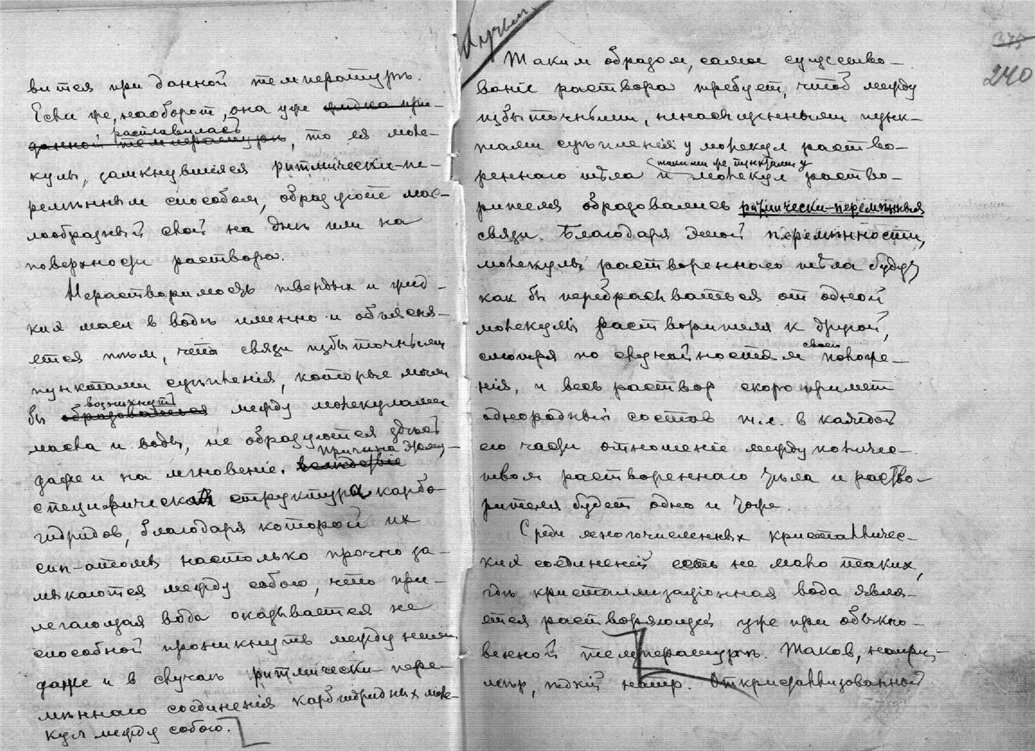 вится при данной температурѣ.
Если же, наоборот, она уже жидка при
данной температурѣ, то ея моле-
расплавилась
кулы, замкнувшіяся ритмически-пе-
ремѣнным способом, образуют мас-
лообразный слой на днѣ или на
поверхности раствора.
Нерастворимость твердых и жид-
ких масл в водѣ именно и объясня-
ется тѣм, что связи избыточными
пунктами сцѣпленія, которые могли
бы образоваться между молекулами
возникнуть
масла и воды, не образуются здѣсь
даже и на мгновение. вследствие
причина этому
специфическая структура карбо-
гидридов, благодаря которой их
син-атомы настолько прочно за-
мыкаются между собою, что при-
легающая вода оказывается не
способной проникнуть между ними
даже и в случаѣ ритмически-пере-
мѣннаго соединения карбгидридных моле-
кул между собою.
Изучен.
375
240
Таким образом, самое существо-
ваніе раствора требует, чтоб между
избыточными, ненасыщенными пунк-
тами сцѣпленія у молекул раство-
такими же пунктами у
реннаго тѣла и молекул раство-
рителя образовались ритмически-перемѣнныя
связи. Благодаря этой перемѣнности,
молекулы растворенного тѣла будут
как бы перебрасываться от одной
молекулы растворителя к другой,
смотря по
своего
положе-
нія, и весь раствор скоро примет
однородный состав т.е. в каждой
его части отношеніе между количе-
ством растворенного тѣла и раство-
рителя будет одно и то же.
Среди многочисленных кристалличес-
ких соединеній есть не мало таких,
гдѣ кристаллизаціонная вода явля-
ется растворяющей уже при обыкно-
венной температурѣ. Таков, напри-
мѣр, ѣдкій натр. Откристаллизованный